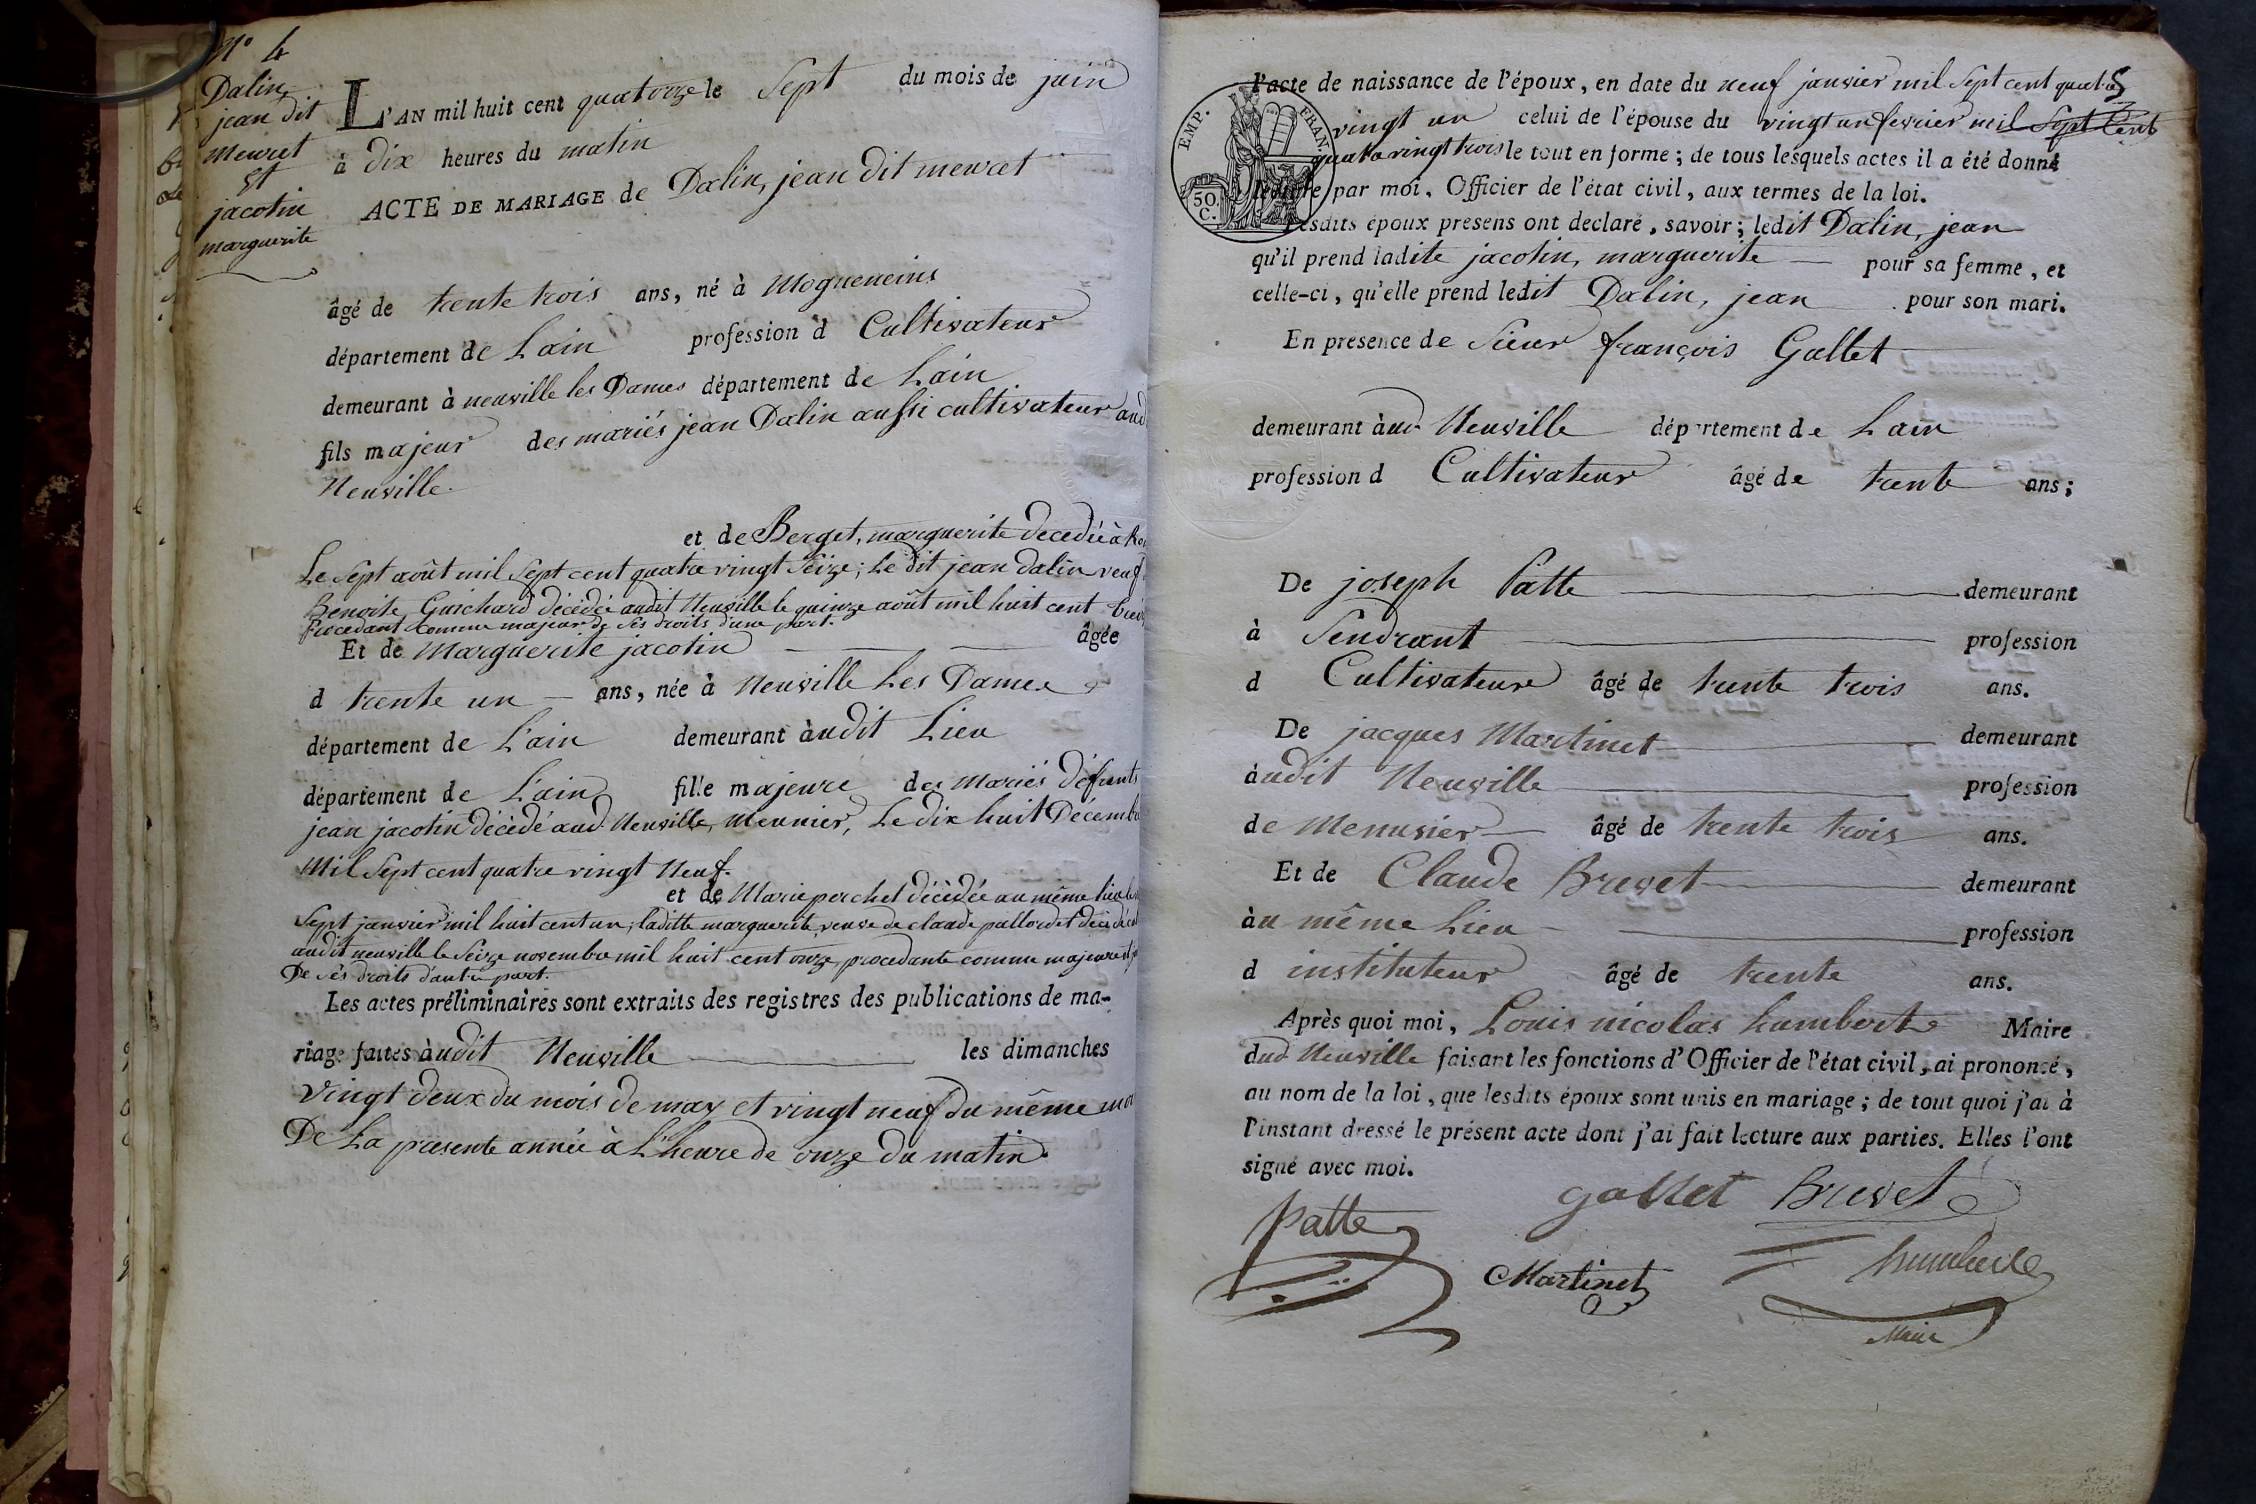 N° 4
Dalin,
jean dit
mewret
Et
jacotin
marguerite
L'AN mil huit cent quatorze le Sept du mois de juin
à dix heures du matin
ACTE DE MARIAGE de Dalin, jean dit mewret
âgé de trente trois ans, né à Mogneneins
département de L'ain profession d Cultivateur
demeurant à neuville les Dames département de L'ain
fils majeur des mariés jean Dalin aussi cultivateur aud
Neuville.
et de Berget, marguerite decedée à
Le Sept août mil Sept cent quatre vingt Seize; Le dit jean Dalin veuf
Benoite Guichard décédée audit Neuville le quinze août mil huit cent
Procedant comme majeur de Ses droits d'une part.
Et de Marguerite jacotin âgée
d trente un ans, née à Neuville Les Dames
département de L'ain demeurant àudit Lieu
département de L'ain fille majeure des Mariés défunts
jean jacotin décédé aud Neuville, Meunier, Le dix huit Décembre
Mil Sept cent quatre vingt Neuf.
et de Marie perchet décédée au même lieu le
Sept janvier mil huit cent un; laditte marguerite, veuve de claude pallordet décédé
audit neuville le Seize novembre mil huit cent onze, procedante comme majeure
De Ses droits d'autre part.
Les actes préliminaires sont extraits des registres des publications de ma-
riage faites àudit Neuville les dimanches
Vingt deux du mois de may et vingt neuf du même
De La presente année à L'heure de onze du matin.
l'acte de naissance de l'époux, en date du neuf janvier mil Sept cent quatre
vingt un celui de l'épouse du vingt un fevrier mil Sept Cent
quatre vingt trois le tout en forme; de tous lesquels actes il a été donné
lecture par moi, Officier de l'état civil, aux termes de la loi.
EMP. FRAN.
50 C.
Lesdits époux presens ont declaré, savoir; ledit Dalin, jean
qu'il prend ladite jacotin, marguerite pour sa femme, et
celle-ci, qu'elle prend ledit Dalin, jean pour son mari.
En presence de Sieur françois Gallet
demeurant àud Neuville département de L'ain
profession d Cultivateur âgé de trente ans;
De joseph Patte demeurant
à Sendrant profession
d Cultivateur âgé de trente trois ans.
De jacques Martinet demeurant
àudit Neuville profession
de Menusier âgé de trente trois ans.
Et de Claude Brevet demeurant
àu même Lieu profession
d instituteur âgé de trente ans.
Après quoi moi, Louis nicolas humberte Maire
dud Neuville faisant les fonctions d'Officier de l'état civil, ai prononcé,
au nom de la loi, que lesdits époux sont unis en mariage; de tout quoi j'ai à
l'instant dressé le présent acte dont j'ai fait lecture aux parties. Elles l'ont
signé avec moi.
gallet Brevet
Patte
Martinet humberte
Maire